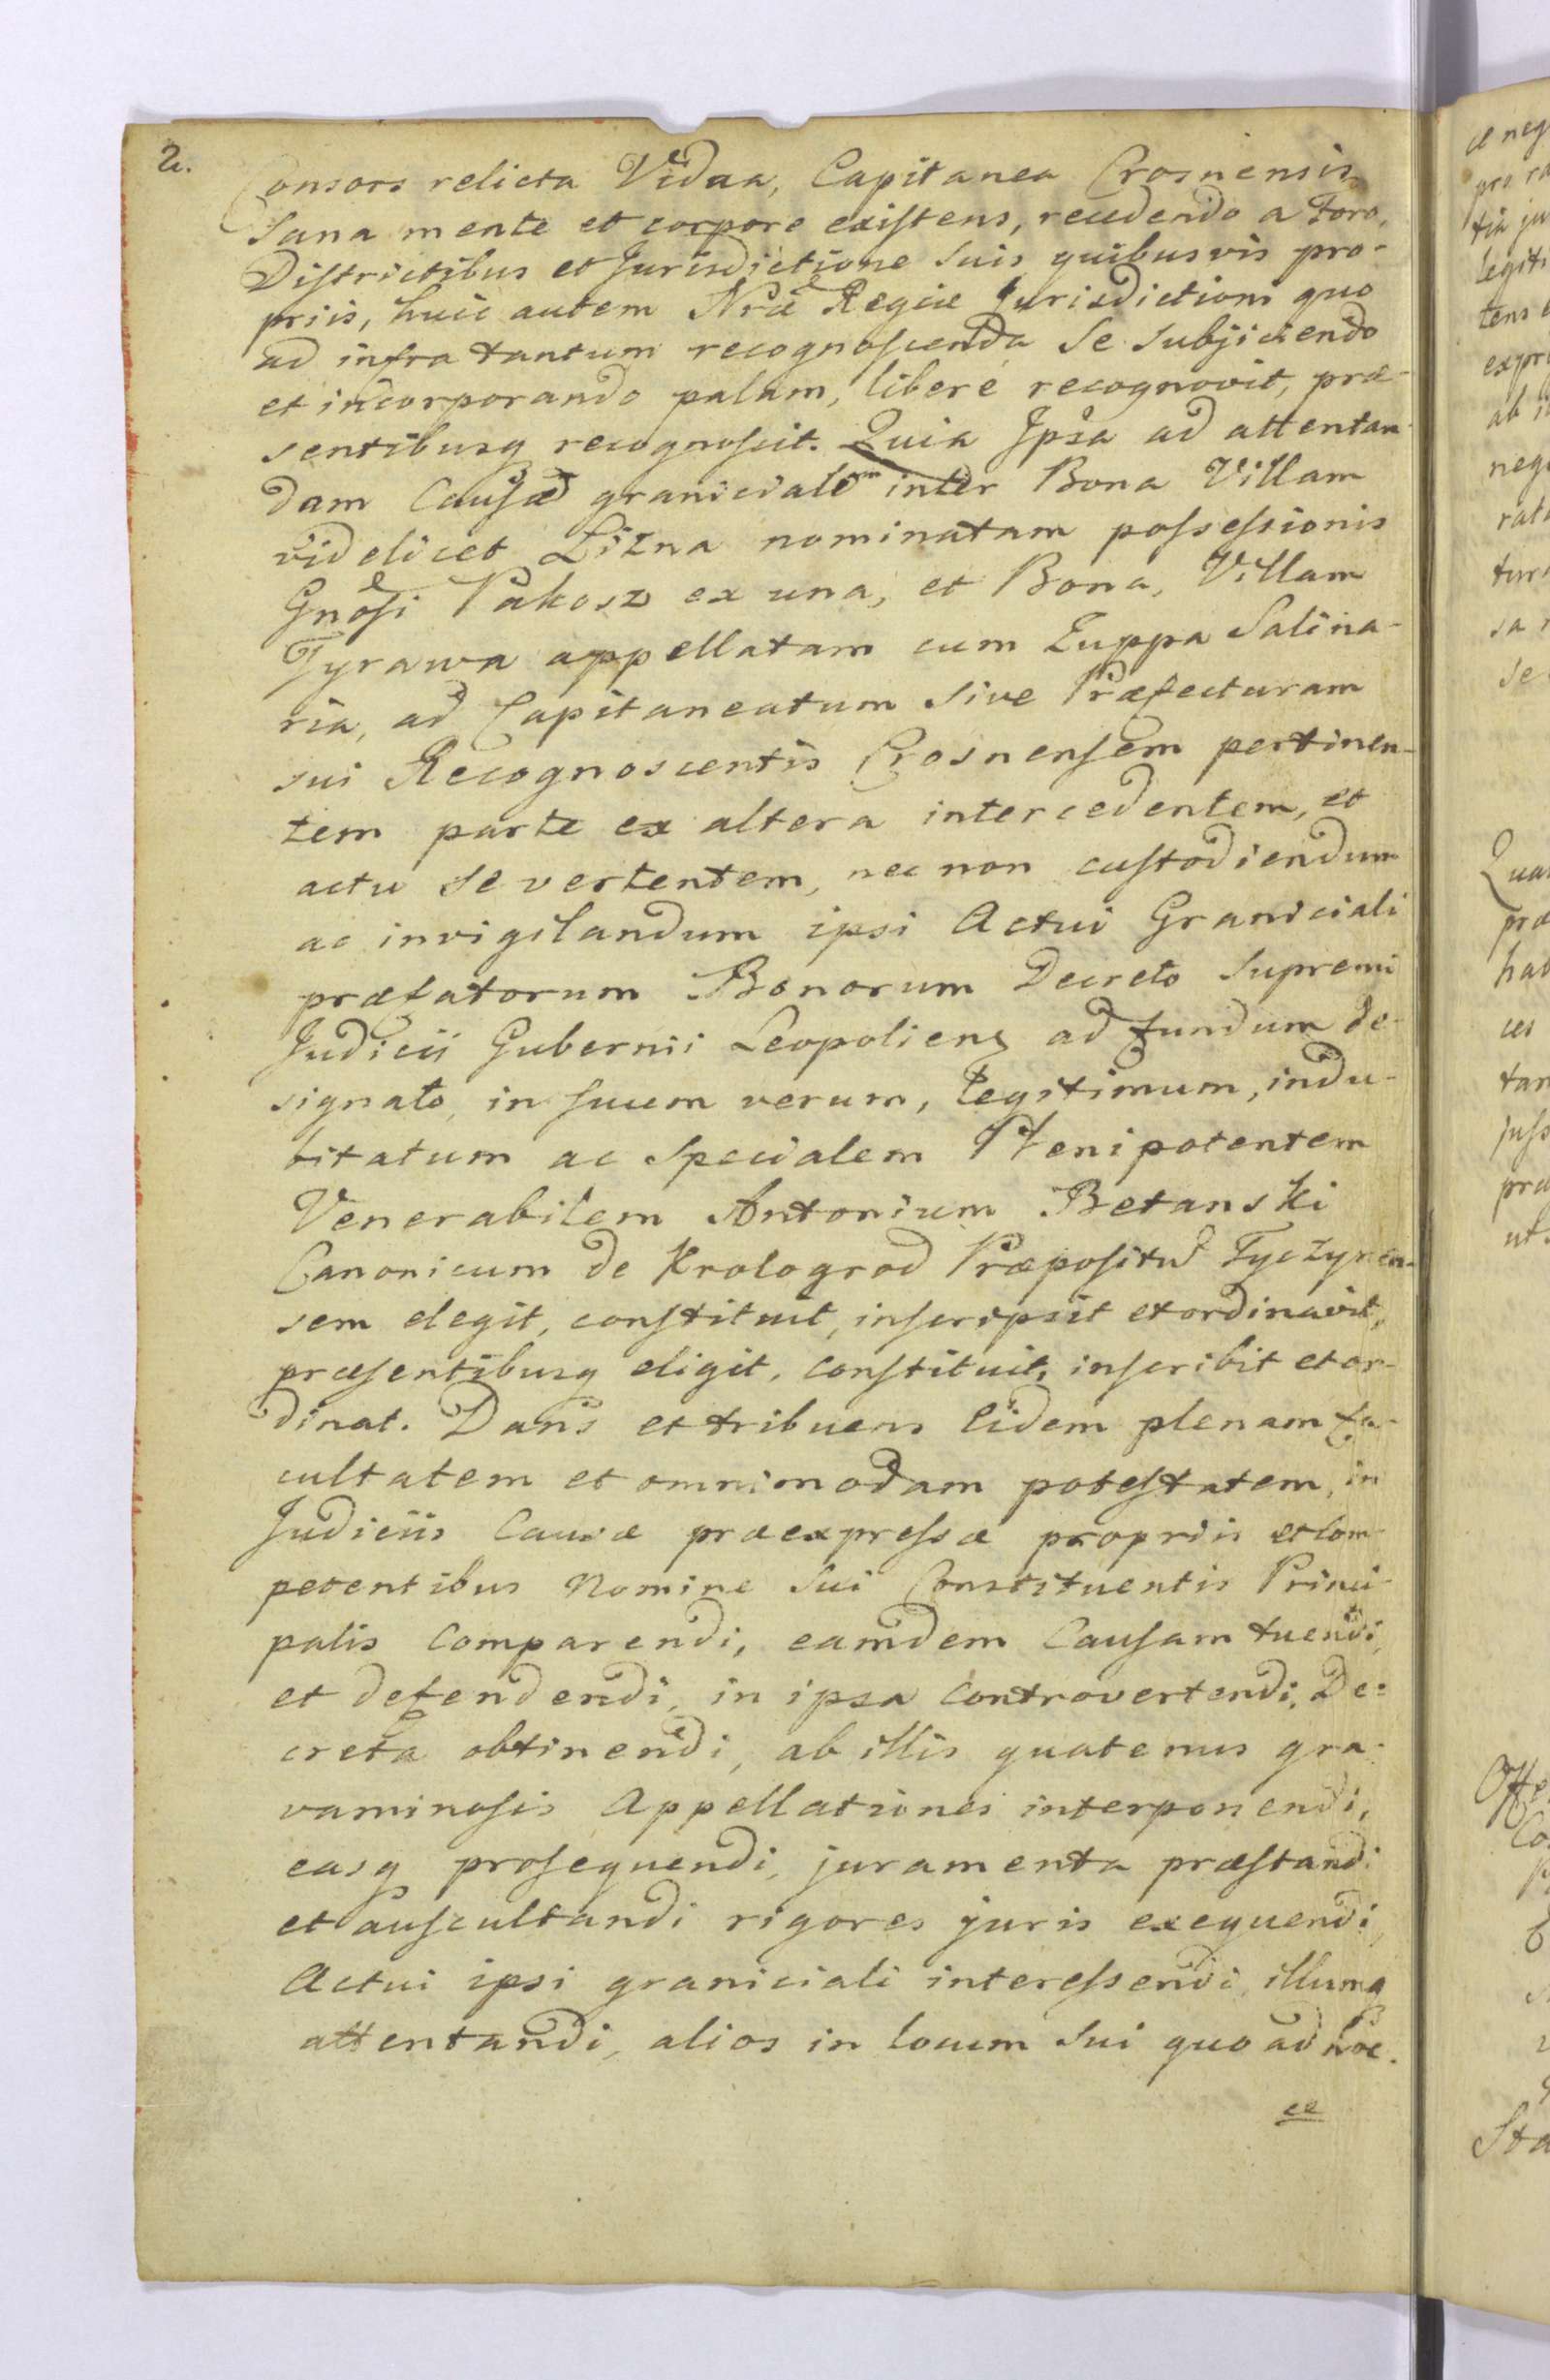 2.
Consors relicta Vidua, Capitanea Crosnensis
Sana mente et corpore existens, recedendo a Foro,
Districtibus et Jurisdictione Suis quibusvis pro-
priis, huic autem Nrae Regiae Jurisdictioni quo
ad infra tantum recognoscenda Se Subjiciendo
et incorporando palam, libere recognovit, prae-
sentibusq recognoscit. Quia Ipsa ad attentan-
dam Causam granicialem inter Bona Villam
videlicet Lizna nominatam possessionis
Gnosi Pakosz ex una, et Bona, Villam
Tyrawa appellatam cum Zuppa Salina-
ria, ad Capitaneatum Sive Praefecturam
sui Recognoscentis Crosnensem pertinen-
tem parte ex altera intercedentem, et
actu Se vertentem, nec non custodiendum
ac invigilandum ipsi Actui Graniciali
praefatorum Bonorum Decreto Supremi
Judicii Gubernii Leopoliens ad fundum de-
signato, in suum verum, legitimum, indu-
bitatum ac Specialem Plenipotentem
Venerabilem Antonium Betanski
Canonicum de Krologrod Praepositum Tyczynen-
sem elegit, constituit, inscripsit et ordinavit,
praesentibusq eligit, constituit, inscribit et or-
dinat. Dans et tribuens Eidem plenam fa-
cultatem et omnimodam potestatem, in
Judiciis Causae praeexpressae propriis et Com-
petentibus Nomine Sui Constituentis Princi-
palis Comparendi, eamdem Causam tuendi,
et defendendi, in ipsa Controvertendi, De-
creta obtinendi, ab illis quatenus gra-
vaminosis Appellationes interponendi,
easq prosequendi, juramenta praestandi
et auscultandi rigores juris exequendi,
Actui ipsi graniciali interessendi, illumq
attentandi, alios in locum Sui quo ad hoc.